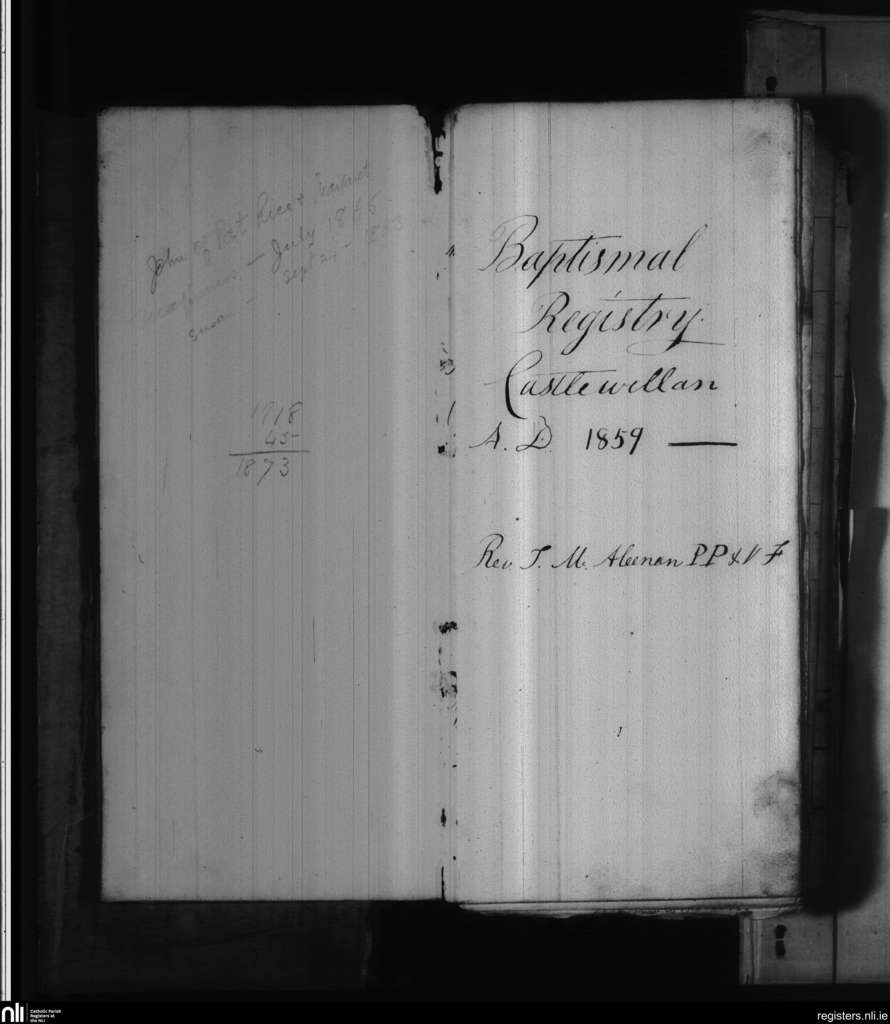 John of Pat Rice & Margaret
— July 1845
Susan — Sept 24 - 1843
1918
45
1873
Baptismal
Registry
Castlewellan
A. D. 1859 —
Rev. T. Mc Aleenan PP & V F
nli
Catholic Parish
Registers at
the NLI
registers.nli.ie